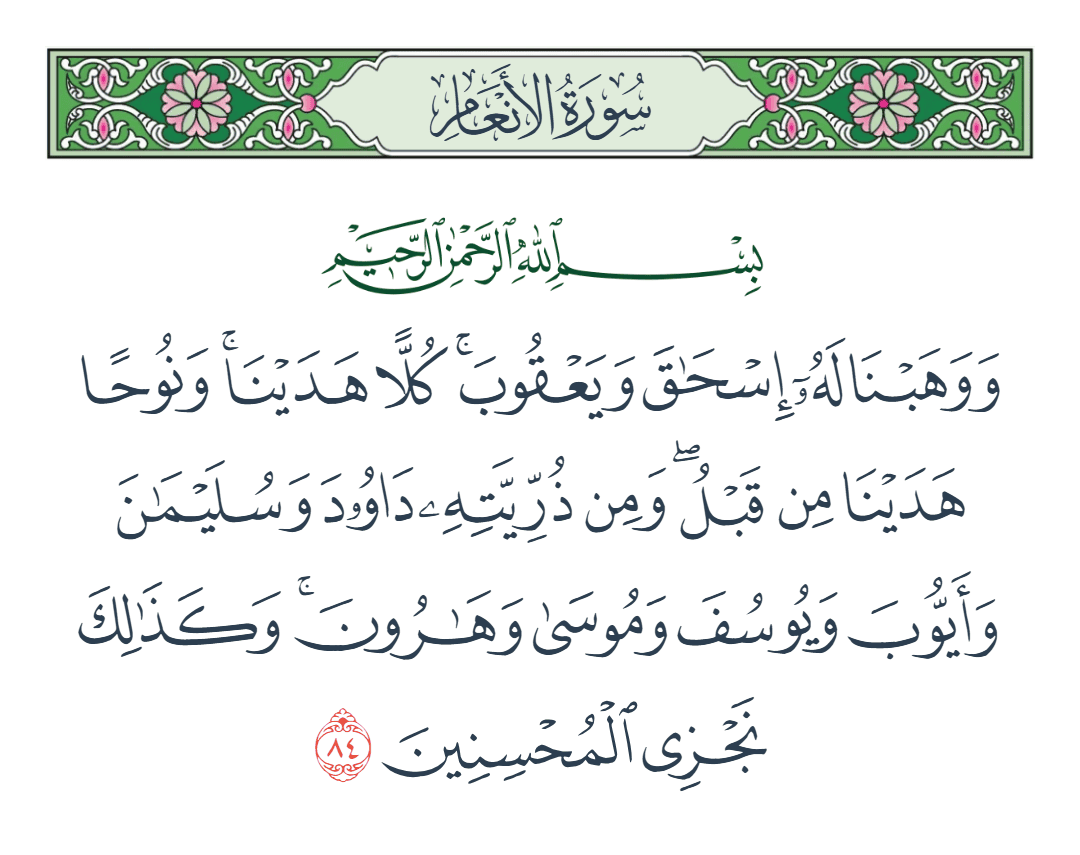 سُورَةُ الأَنْعَامِ
بِسْمِ ٱللَّهِ ٱلرَّحْمَٰنِ ٱلرَّحِيمِ
وَوَهَبْنَا لَهُۥٓ إِسْحَٰقَ وَيَعْقُوبَ ۚ كُلًّا هَدَيْنَا ۚ وَنُوحًا
هَدَيْنَا مِن قَبْلُ ۖ وَمِن ذُرِّيَّتِهِۦ دَاوُۥدَ وَسُلَيْمَٰنَ
وَأَيُّوبَ وَيُوسُفَ وَمُوسَىٰ وَهَٰرُونَ ۚ وَكَذَٰلِكَ
نَجْزِى ٱلْمُحْسِنِينَ ٨٤